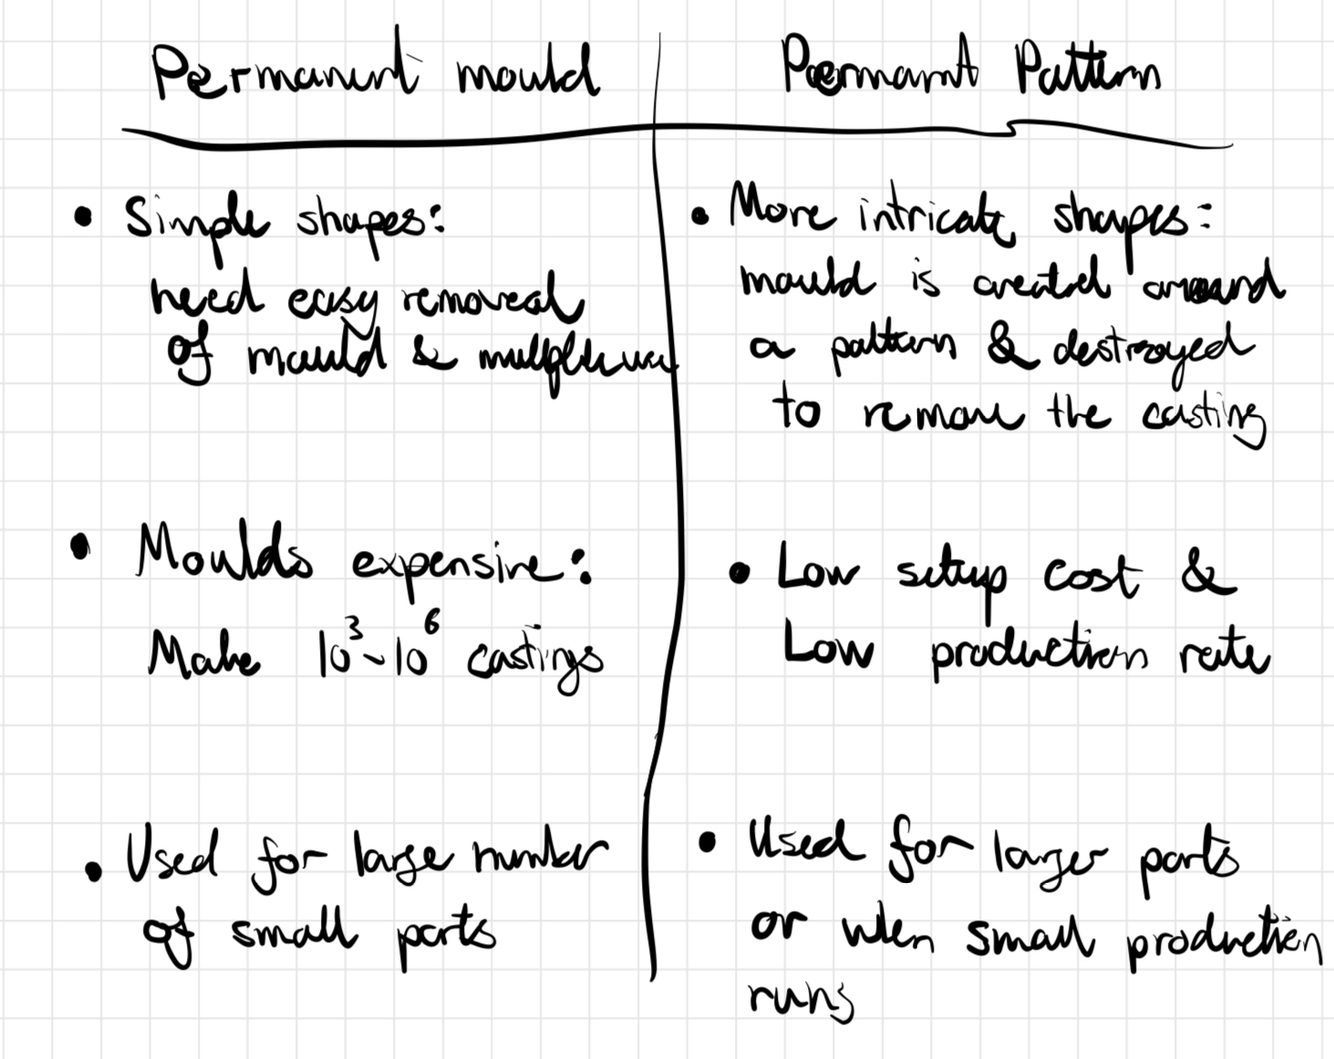 Permanent mould
• Simple shapes:
need easy removal
of mould & multiple use
• Moulds expensive:
Make 10³-10⁶ castings
• Used for large number
of small parts
Permanent Pattern
• More intricate shapes:
mould is created around
a pattern & destroyed
to remove the casting
• Low setup cost &
Low production rate
• Used for larger parts
or when small production
runs